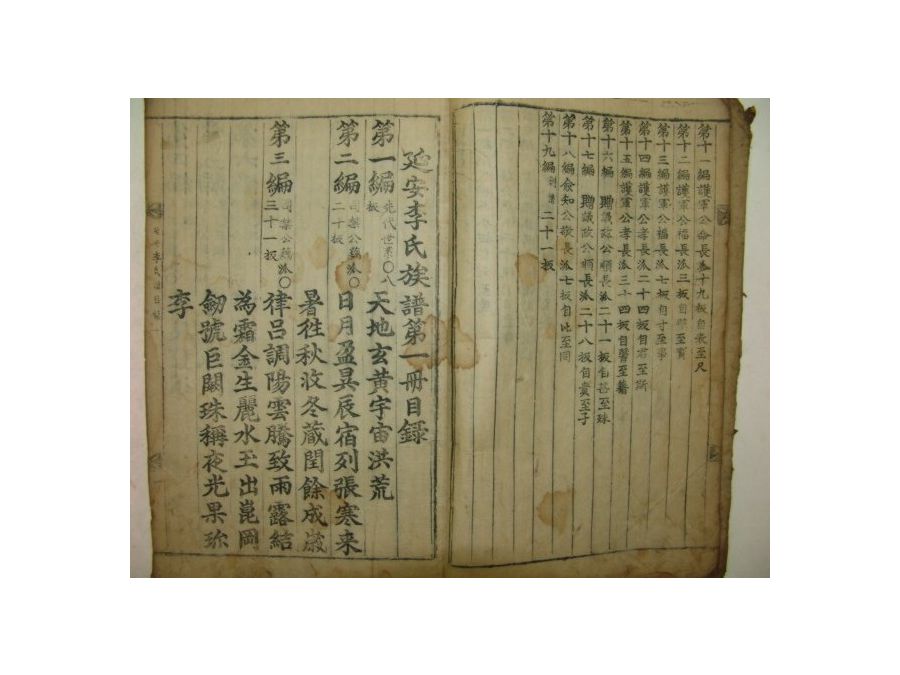 第十一編護軍公命長派十九板自養至尺
第十二編護軍公福長派三板自璧至寶
第十三編護軍公福長派七板自寸至事
第十四編護軍公孝長派二十四板自君至斯
第十五編護軍公孝長派三十四板自馨至籍
第十六編 贈議政公順長派二十一板自甚至殊
第十七編 贈議政公順長派二十八板自貴至子
第十八編僉知公敬長派七板自比至同
第十九編別譜二十一板
延安李氏族譜第一冊目錄
第一編先代世系○八板 天地玄黃宇宙洪荒
第二編司業公派○二十板 日月盈昃辰宿列張寒来
暑徃秋收冬蔵閏餘成歲
第三編司業公派○三十一板 律呂調陽雲騰致雨露結
為霜金生麗水玉出崑岡
劒號巨闕珠稱夜光果珎
李